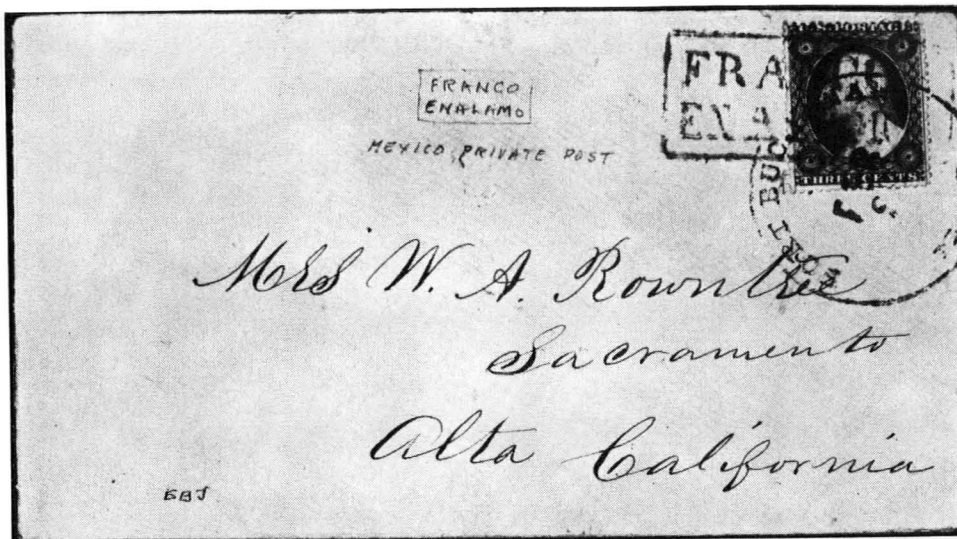 FRANCO
ENALAMO
MEXICO, PRIVATE POST
FRA
EN A
THREE CENTS
ORT BUC
Mrs W. A. Rowntree
Sacramento
Alta California
EBJ